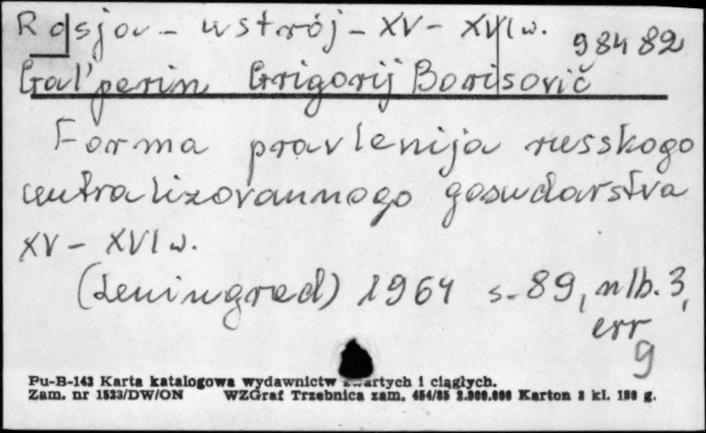 Rosja - ustrój - XV - XVI w. 98482
Gal'perin Grigorij Borisovič
Forma pravlenija russkogo
centralizovannogo gosudarstva
XV - XVI w.
(Leningrad) 1964 s. 89, nlb. 3,
err
9
Pu-B-143 Karta katalogowa wydawnictw zwartych i ciągłych.
Zam. nr 1523/DW/ON WZGraf Trzebnica zam. 454/85 2.000.000 Karton 2 kl. 190 g.